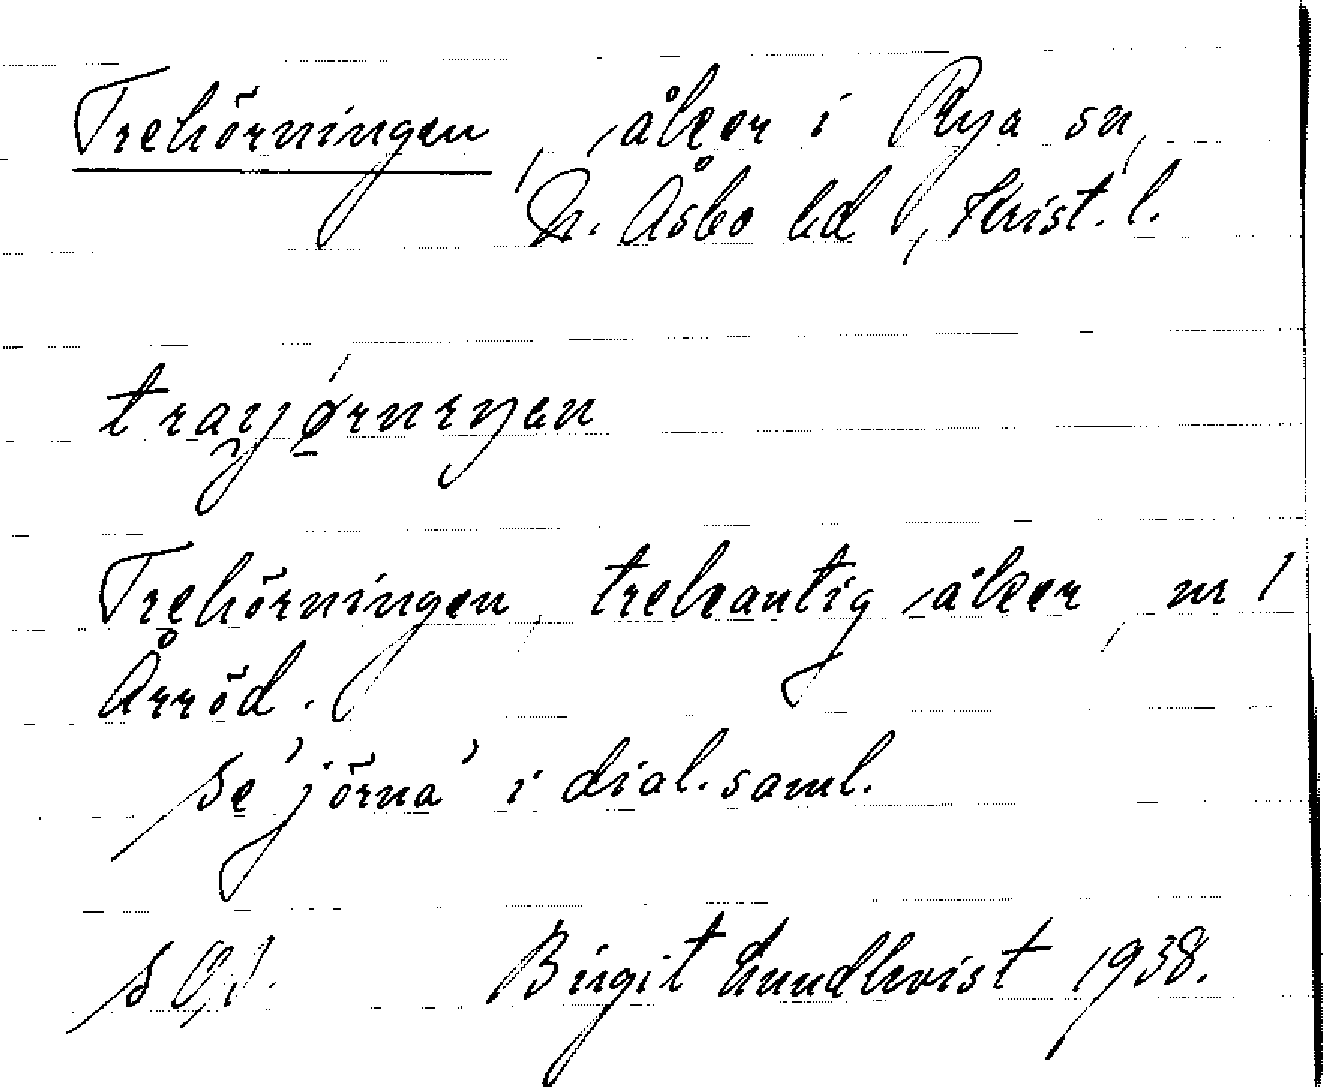 Trehörningen, åker i Rya sn,
N. Åsbo hd, Krist. l.
Trehörningen, trekantig åker, nr 1
Årröd.
Se 'jörna' i dial. saml.
Birgit Lundkvist 1938.